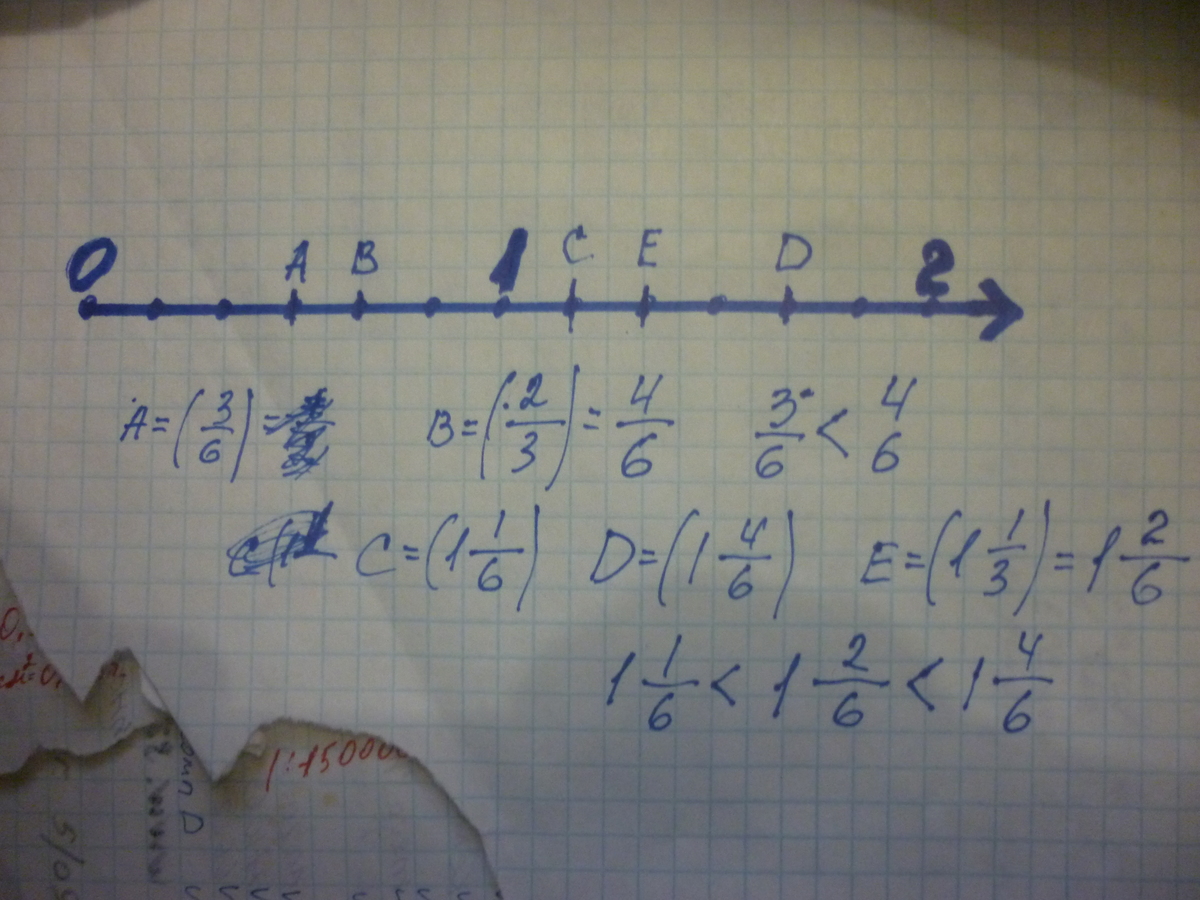 0 A B 1 C E D 2
A = (3/6) = B = (2/3) = 4/6 3/6 < 4/6
C = (1 1/6) D = (1 4/6) E = (1 1/3) = 1 2/6
1 1/6 < 1 2/6 < 1 4/6
0,
1:15000